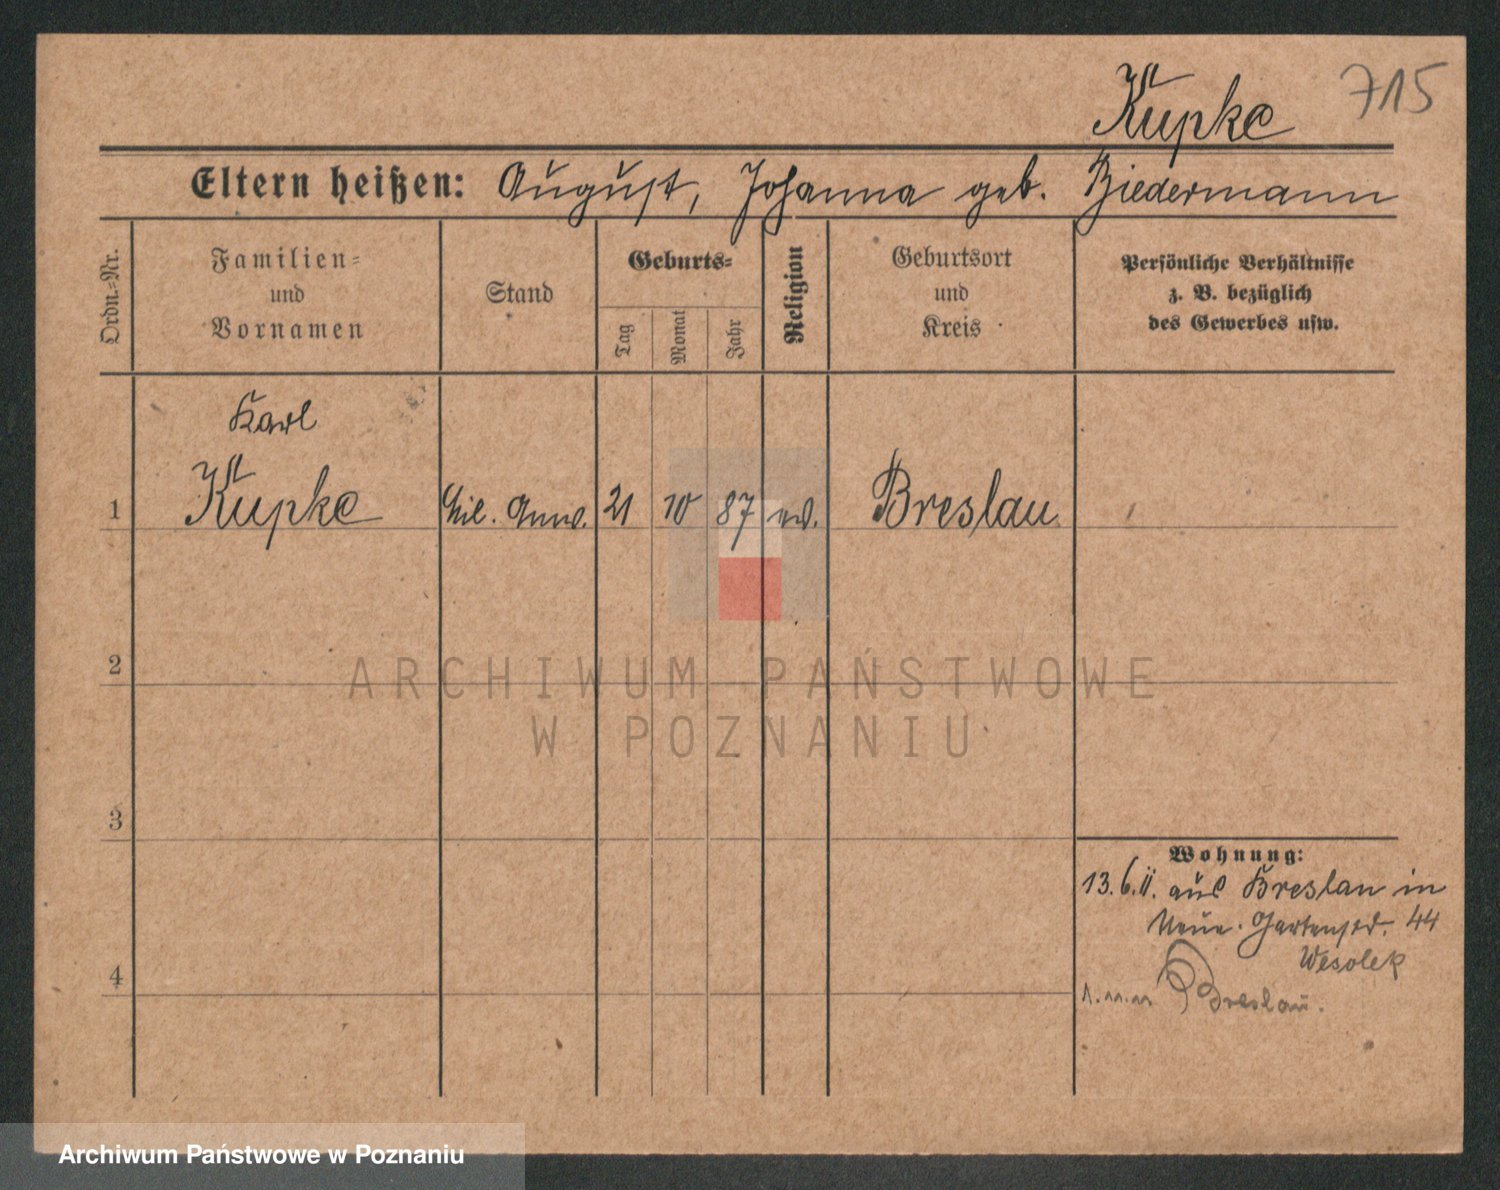 Kupke 715
Eltern heißen: August, Johanna geb. Biedermann
Ordn.-Nr.
Familien-
und
Vornamen
Stand
Geburts-
Tag
Monat
Jahr
Religion
Geburtsort
und
Kreis
Persönliche Verhältnisse
z. B. bezüglich
des Gewerbes usw.
Karl
1 Kupke Mil. Anw. 21 10 87 ev. Breslau
2
ARCHIWUM PAŃSTWOWE
W POZNANIU
3
Wohnung:
13.6.11. aus Breslau in
Neue Gartenstr. 44
Wesolek
4
1.11.11 Breslau.
Archiwum Państwowe w Poznaniu